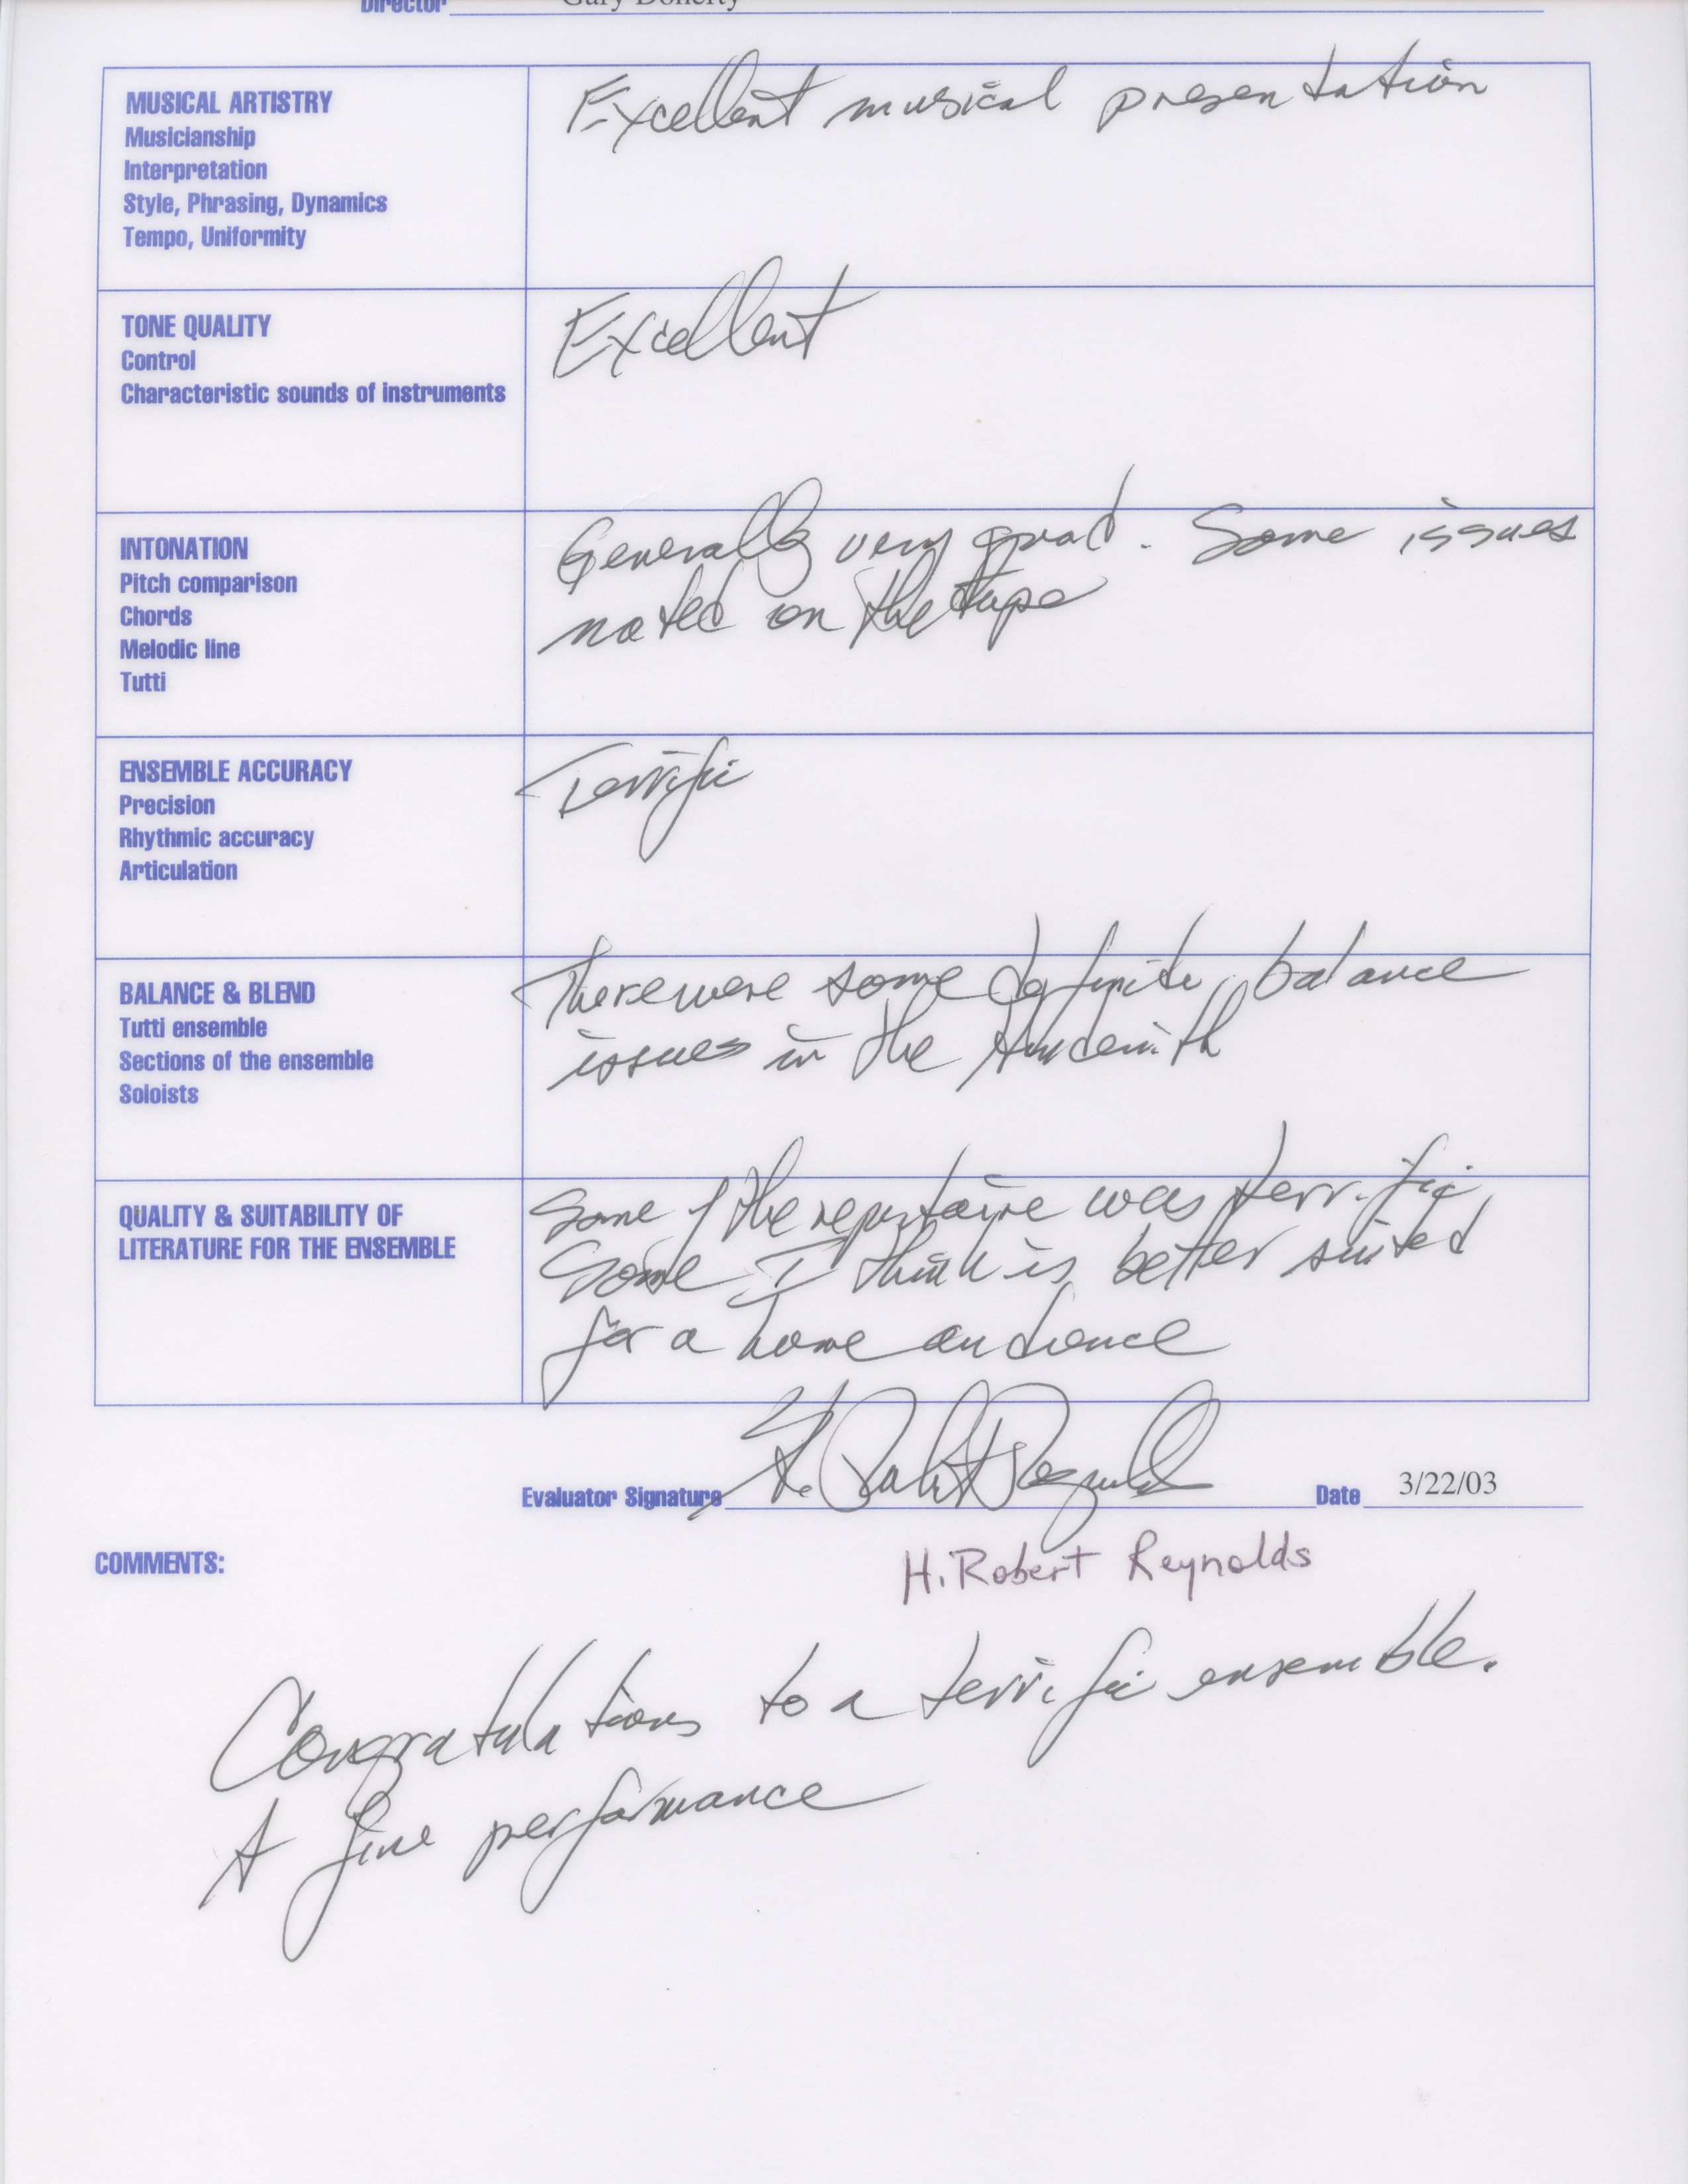 Director Gary Doherty
MUSICAL ARTISTRY
Musicianship
Interpretation
Style, Phrasing, Dynamics
Tempo, Uniformity
Excellent musical presentation
TONE QUALITY
Control
Characteristic sounds of instruments
Excellent
INTONATION
Pitch comparison
Chords
Melodic line
Tutti
Generally very good. Some issues
noted on the tape
ENSEMBLE ACCURACY
Precision
Rhythmic accuracy
Articulation
Terrific
BALANCE & BLEND
Tutti ensemble
Sections of the ensemble
Soloists
There were some definite balance
issues in the Hindemith
QUALITY & SUITABILITY OF
LITERATURE FOR THE ENSEMBLE
Some of the repertoire was terrific,
Some I think is better suited
for a home audience
Evaluator Signature H. Robert Reynolds Date 3/22/03
H. Robert Reynolds
COMMENTS:
Congratulations to a terrific ensemble.
A fine performance